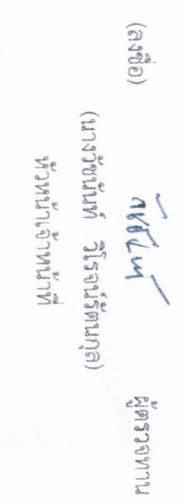 (ลงชื่อ) ผู้ตรวจทาน
(นางวัชนันท์ วิโรจน์รัตนกุล)
หัวหน้าเจ้าหน้าที่